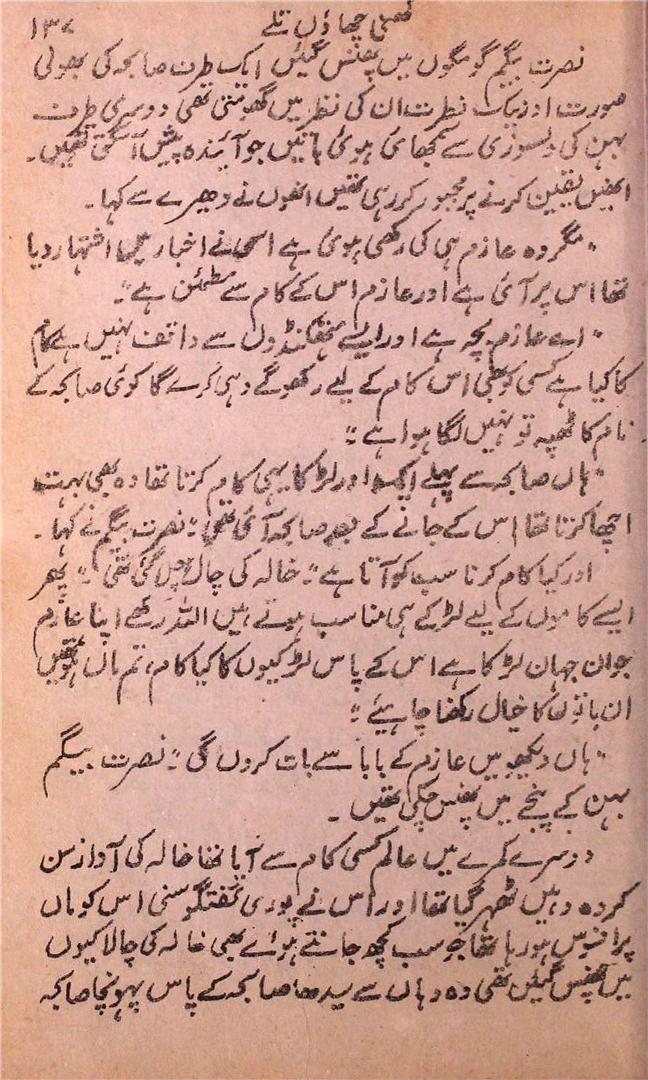 گھنی چھاؤں تلے ۱۳۷
نصرت بیگم گو مگوں میں پھنس گئیں ایک طرف صابحہ کی بھولی
صورت اور نیک فطرت ان کی نظر میں گھومتی تھی دوسری طرف
بہن کی دلسوزی سے سمجھائی ہوئی باتیں جو آیندہ پیش آسکتی تھیں۔
انھیں یقین کرنے پر مجبور کررہی تھیں انھوں نے دھیرے سے کہا۔
"مگر وہ عازم ہی کی رکھی ہوئی ہے اسی نے اخبار میں اشتہار دیا
تھا اس پر آئی ہے اور عازم اس کے کام سے مطمئن ہے"۔
"اے عازم بچہ ہے اور ایسے ہتھکنڈوں سے واقف نہیں ہے کام
کا کیا ہے کسی کو بھی اس کام کے لیے رکھوگے وہی کرے گا کوئی صابحہ کے
نام کا ٹھپہ تو نہیں لگا ہوا ہے"۔
"ہاں صابحہ سے پہلے ایک اور لڑکا یہی کام کرتا تھا وہ بھی بہت
اچھا کرتا تھا اس کے جانے کے بعد صابحہ آئی تھی"۔ نصرت بیگم نے کہا۔
اور کیا کام کرنا سب کو آتا ہے"۔ خالہ کی چال چل گئی تھی"۔ پھر
ایسے کاموں کے لیے لڑکے ہی مناسب ہوتے ہیں اللہ رکھے اپنا عازم
جوان جہان لڑکا ہے اس کے پاس لڑکیوں کا کیا کام، تم ماں ہو تمہیں
ان باتوں کا خیال رکھنا چاہیئے"۔
"ہاں دیکھو میں عازم کے بابا سے بات کروں گی"۔ نصرت بیگم
بہن کے پنجے میں پھنس چکی تھیں۔
دوسرے کمرے میں عالم کسی کام سے آیا تھا خالہ کی آواز سن
کر وہ وہیں ٹھہر گیا تھا اور اس نے پوری گفتگو سنی اس کو ماں
پر افسوس ہورہا تھا جو سب کچھ جانتے ہوئے بھی خالہ کی چالاکیوں
میں پھنس گئیں تھی وہ وہاں سے سیدھا صابحہ کے پاس پہونچا صابحہ